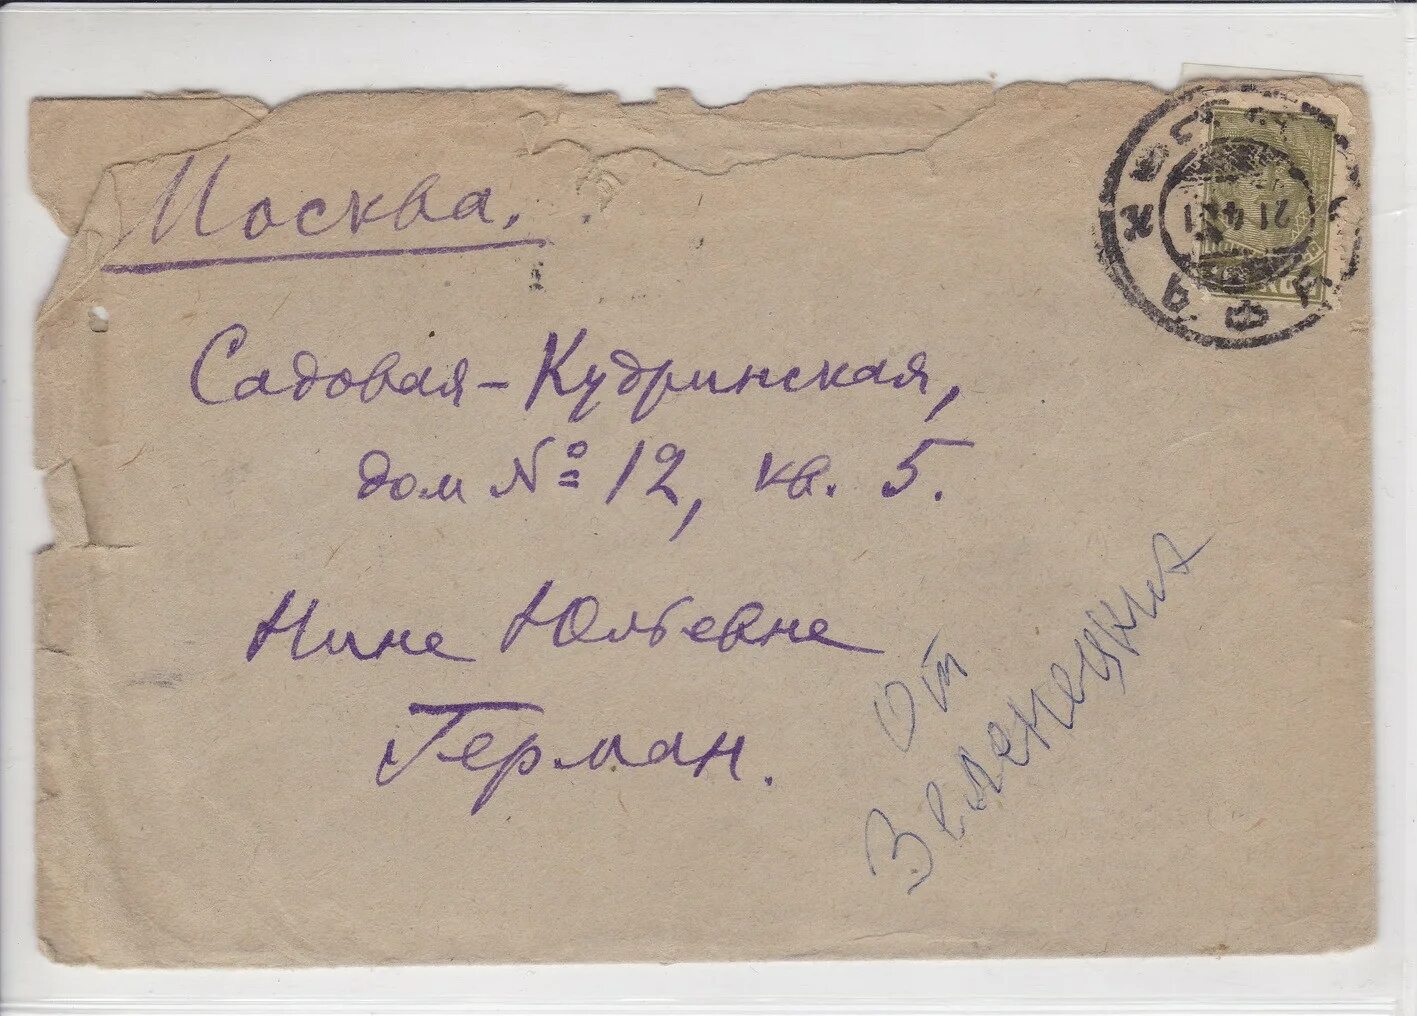 Москва.
Садовая-Кудринская,
дом № 12, кв. 5.
Нине Юльевне
Герман.
От
Зеленецких
21 4